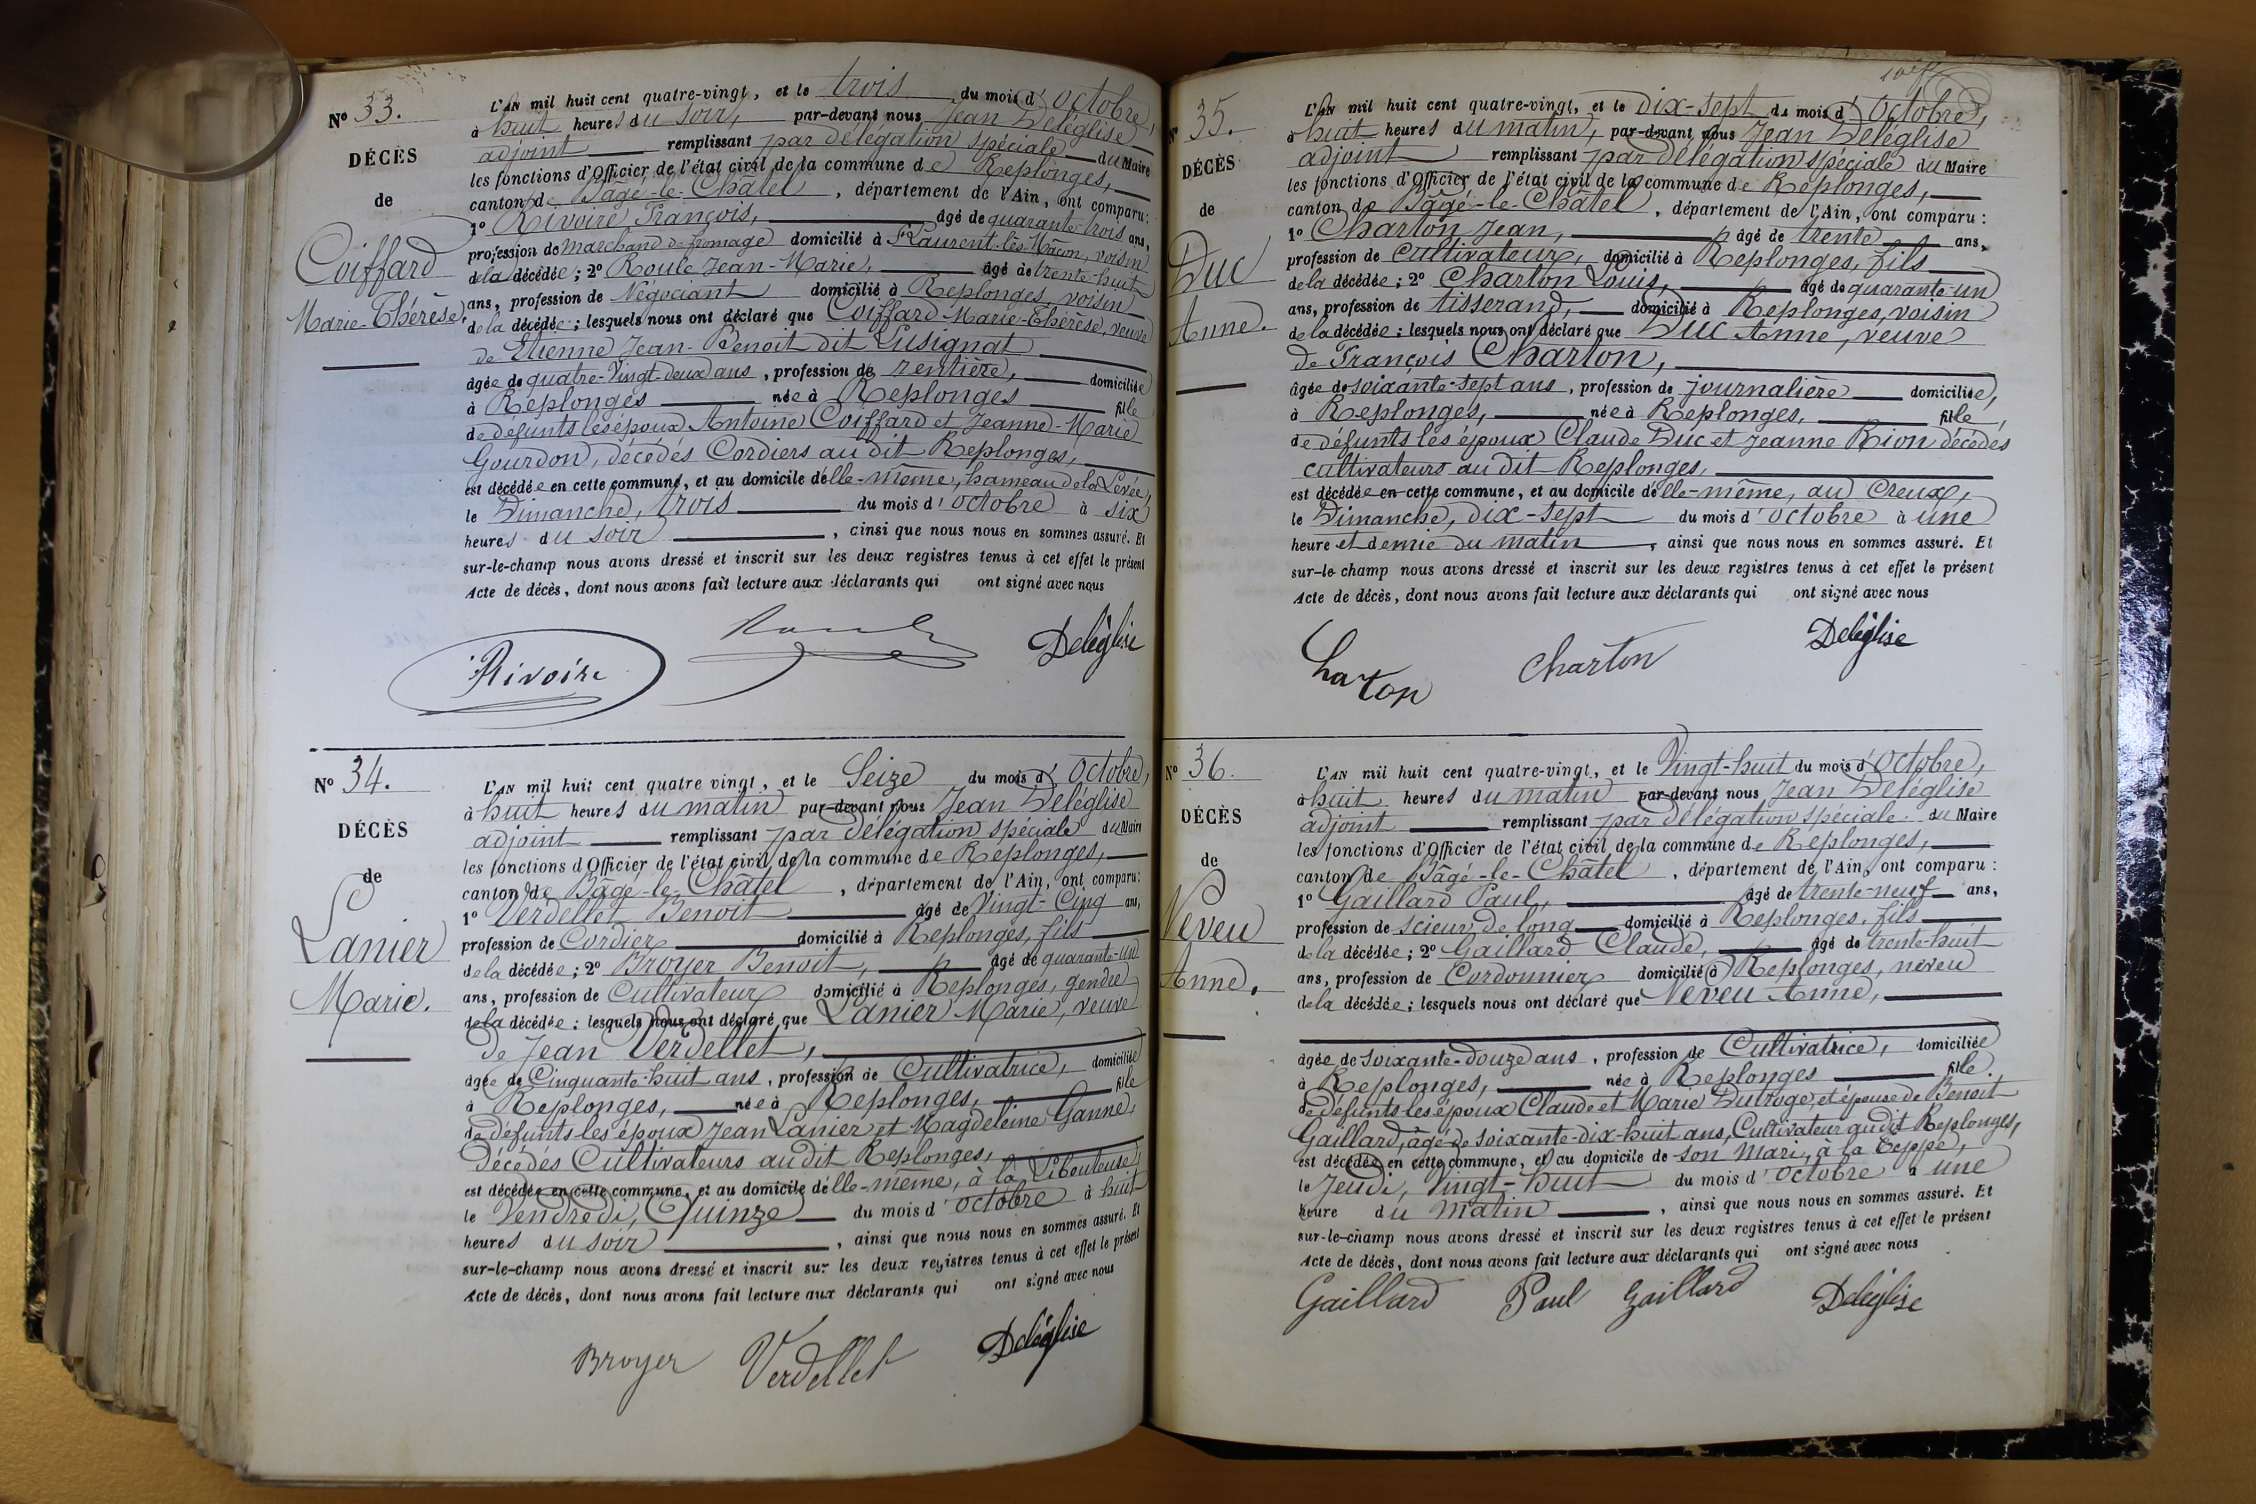 N° 33.
DÉCÈS
de
Coiffard
Marie-Thérèse.
L'AN mil huit cent quatre-vingt, et le trois du mois d'Octobre,
à huit heures du soir, par-devant nous Jean Deléglise
adjoint remplissant par délégation spéciale du Maire
les fonctions d'Officier de l'état civil de la commune de Replonges,
canton de Bâgé-le-Châtel, département de l'Ain, ont comparu :
1° Rivoire François, âgé de quarante-trois ans,
profession de marchand de fromage domicilié à St Laurent-lès-Mâcon, voisin
de la décédée ; 2° Roule Jean-Marie, âgé de trente-huit
ans, profession de Négociant domicilié à Replonges, voisin
de la décédée ; lesquels nous ont déclaré que Coiffard Marie-Thérèse, veuve
de Etienne Jean-Benoit dit Lusignat
âgée de quatre-vingt-deux ans, profession de rentière, domiciliée
à Replonges née à Replonges fille
de défunts les époux Antoine Coiffard et Jeanne-Marie
Gourdon, décédés Cordiers au dit Replonges,
est décédée en cette commune, et au domicile d'elle-même, hameau de la Levée,
le Dimanche, trois du mois d'octobre à six
heures du soir, ainsi que nous nous en sommes assuré. Et
sur-le-champ nous avons dressé et inscrit sur les deux registres tenus à cet effet le présent
Acte de décès, dont nous avons fait lecture aux déclarants qui ont signé avec nous
Rivoire Deléglise
N° 34.
DÉCÈS
de
Lanier
Marie.
L'AN mil huit cent quatre vingt, et le Seize du mois d'Octobre,
à huit heures du matin par-devant nous Jean Deléglise
adjoint remplissant par délégation spéciale du Maire
les fonctions d'Officier de l'état civil de la commune de Replonges,
canton de Bâgé-le-Châtel, département de l'Ain, ont comparu :
1° Verdellet Benoit âgé de Vingt-Cinq ans,
profession de Cordier domicilié à Replonges, fils
de la décédée ; 2° Broyer Benoit, âgé de quarante-un
ans, profession de Cultivateur domicilié à Replonges, gendre
de la décédée : lesquels nous ont déclaré que Lanier Marie, veuve
de Jean Verdellet,
âgée de Cinquante-huit ans, profession de Cultivatrice, domiciliée
à Replonges, née à Replonges, fille
de défunts les époux Jean Lanier et Magdeleine Ganne,
décédés Cultivateurs au dit Replonges,
est décédée en cette commune, et au domicile d'elle-même, à la
le Vendredi, Quinze du mois d'octobre à huit
heures du soir, ainsi que nous nous en sommes assuré. Et
sur-le-champ nous avons dressé et inscrit sur les deux registres tenus à cet effet le présent
Acte de décès, dont nous avons fait lecture aux déclarants qui ont signé avec nous
Broyer Verdellet Deléglise
N° 35.
DÉCÈS
de
Duc
Anne.
L'AN mil huit cent quatre-vingt, et le dix-sept du mois d'Octobre,
à huit heures du matin, par-devant nous Jean Deléglise
adjoint remplissant par délégation spéciale du Maire
les fonctions d'Officier de l'état civil de la commune de Replonges,
canton de Bâgé-le-Châtel, département de l'Ain, ont comparu :
1° Charton Jean, âgé de trente ans,
profession de cultivateur, domicilié à Replonges, fils
de la décédée ; 2° Charton Louis, âgé de quarante-un
ans, profession de tisserand, domicilié à Replonges, voisin
de la décédée ; lesquels nous ont déclaré que Duc Anne, veuve
de François Charton,
âgée de soixante-sept ans, profession de journalière domiciliée,
à Replonges, née à Replonges, fille,
de défunts les époux Claude Duc et Jeanne Rion décédés
cultivateurs au dit Replonges,
est décédée en cette commune, et au domicile d'elle-même, au Creux,
le Dimanche, dix-sept du mois d'octobre à une
heure et demie du matin, ainsi que nous nous en sommes assuré. Et
sur-le champ nous avons dressé et inscrit sur les deux registres tenus à cet effet le présent
Acte de décès, dont nous avons fait lecture aux déclarants qui ont signé avec nous
Charton Charton Deléglise
N° 36.
DÉCÈS
de
Neveu
Anne.
L'AN mil huit cent quatre-vingt, et le Vingt-huit du mois d'Octobre,
à huit heures du matin par-devant nous Jean Deléglise
adjoint remplissant par délégation spéciale du Maire
les fonctions d'Officier de l'état civil de la commune de Replonges,
canton de Bâgé-le-Châtel, département de l'Ain, ont comparu :
1° Gaillard Paul, âgé de trente-neuf ans,
profession de scieur de long domicilié à Replonges, fils
de la décédée ; 2° Gaillard Claude, âgé de trente-huit
ans, profession de Cordonnier domicilié à Replonges, neveu
de la décédée ; lesquels nous ont déclaré que Neveu Anne,
âgée de soixante-douze ans, profession de Cultivatrice, domiciliée
à Replonges, née à Replonges fille.
de défunts les époux Claude et Marie Dutroge, et épouse de Benoit
Gaillard, âgé de soixante-dix-huit ans, Cultivateur au dit Replonges,
est décédée en cette commune, et au domicile de son mari, à la Teppe,
le Jeudi, Vingt-huit du mois d'octobre à une
heure du matin, ainsi que nous nous en sommes assuré. Et
sur-le-champ nous avons dressé et inscrit sur les deux registres tenus à cet effet le présent
Acte de décès, dont nous avons fait lecture aux déclarants qui ont signé avec nous
Gaillard Paul Gaillard Deléglise